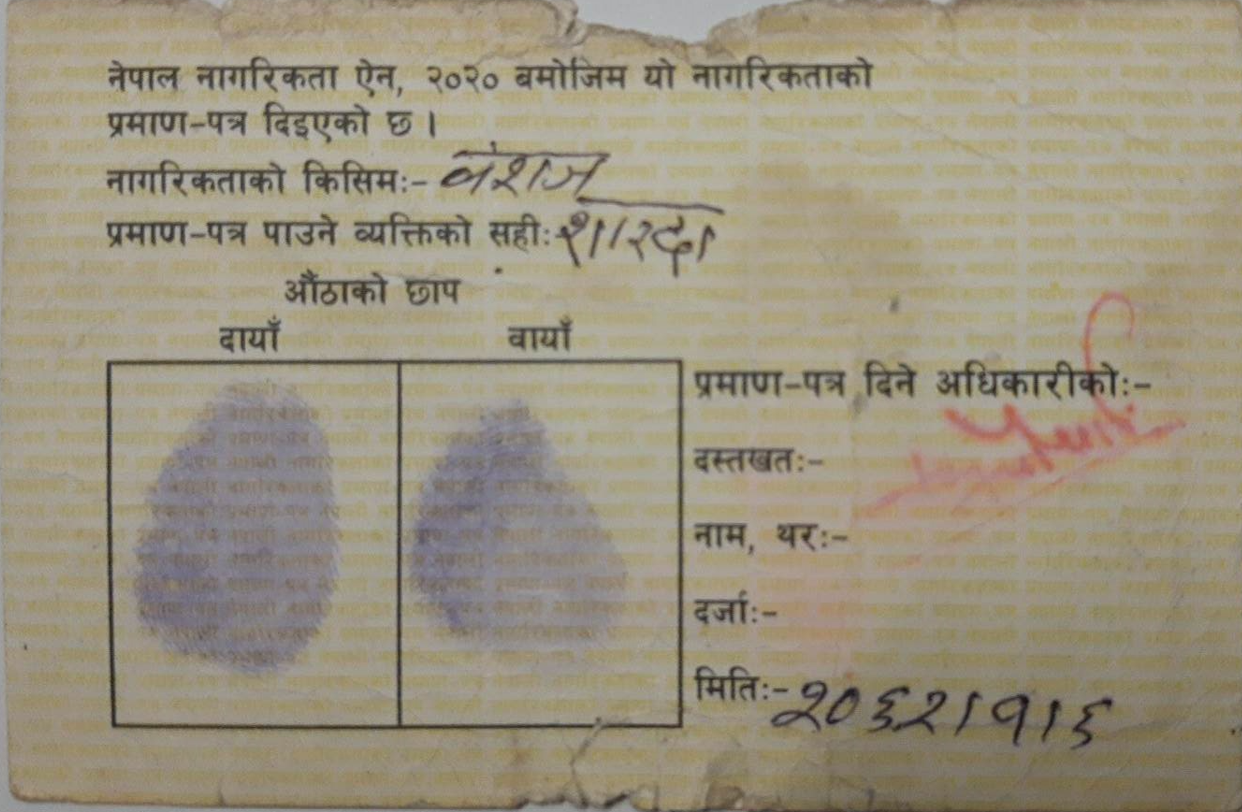 नेपाल नागरिकता ऐन, २०२० बमोजिम यो नागरिकताको
प्रमाण-पत्र दिइएको छ ।
नागरिकताको किसिमः- वंशज
प्रमाण-पत्र पाउने व्यक्तिको सहीः- शारदा
औंठाको छाप
दायाँ बायाँ
प्रमाण-पत्र दिने अधिकारीकोः-
दस्तखतः-
नाम, थरः-
दर्जाः-
मितिः- २०६२।१।६